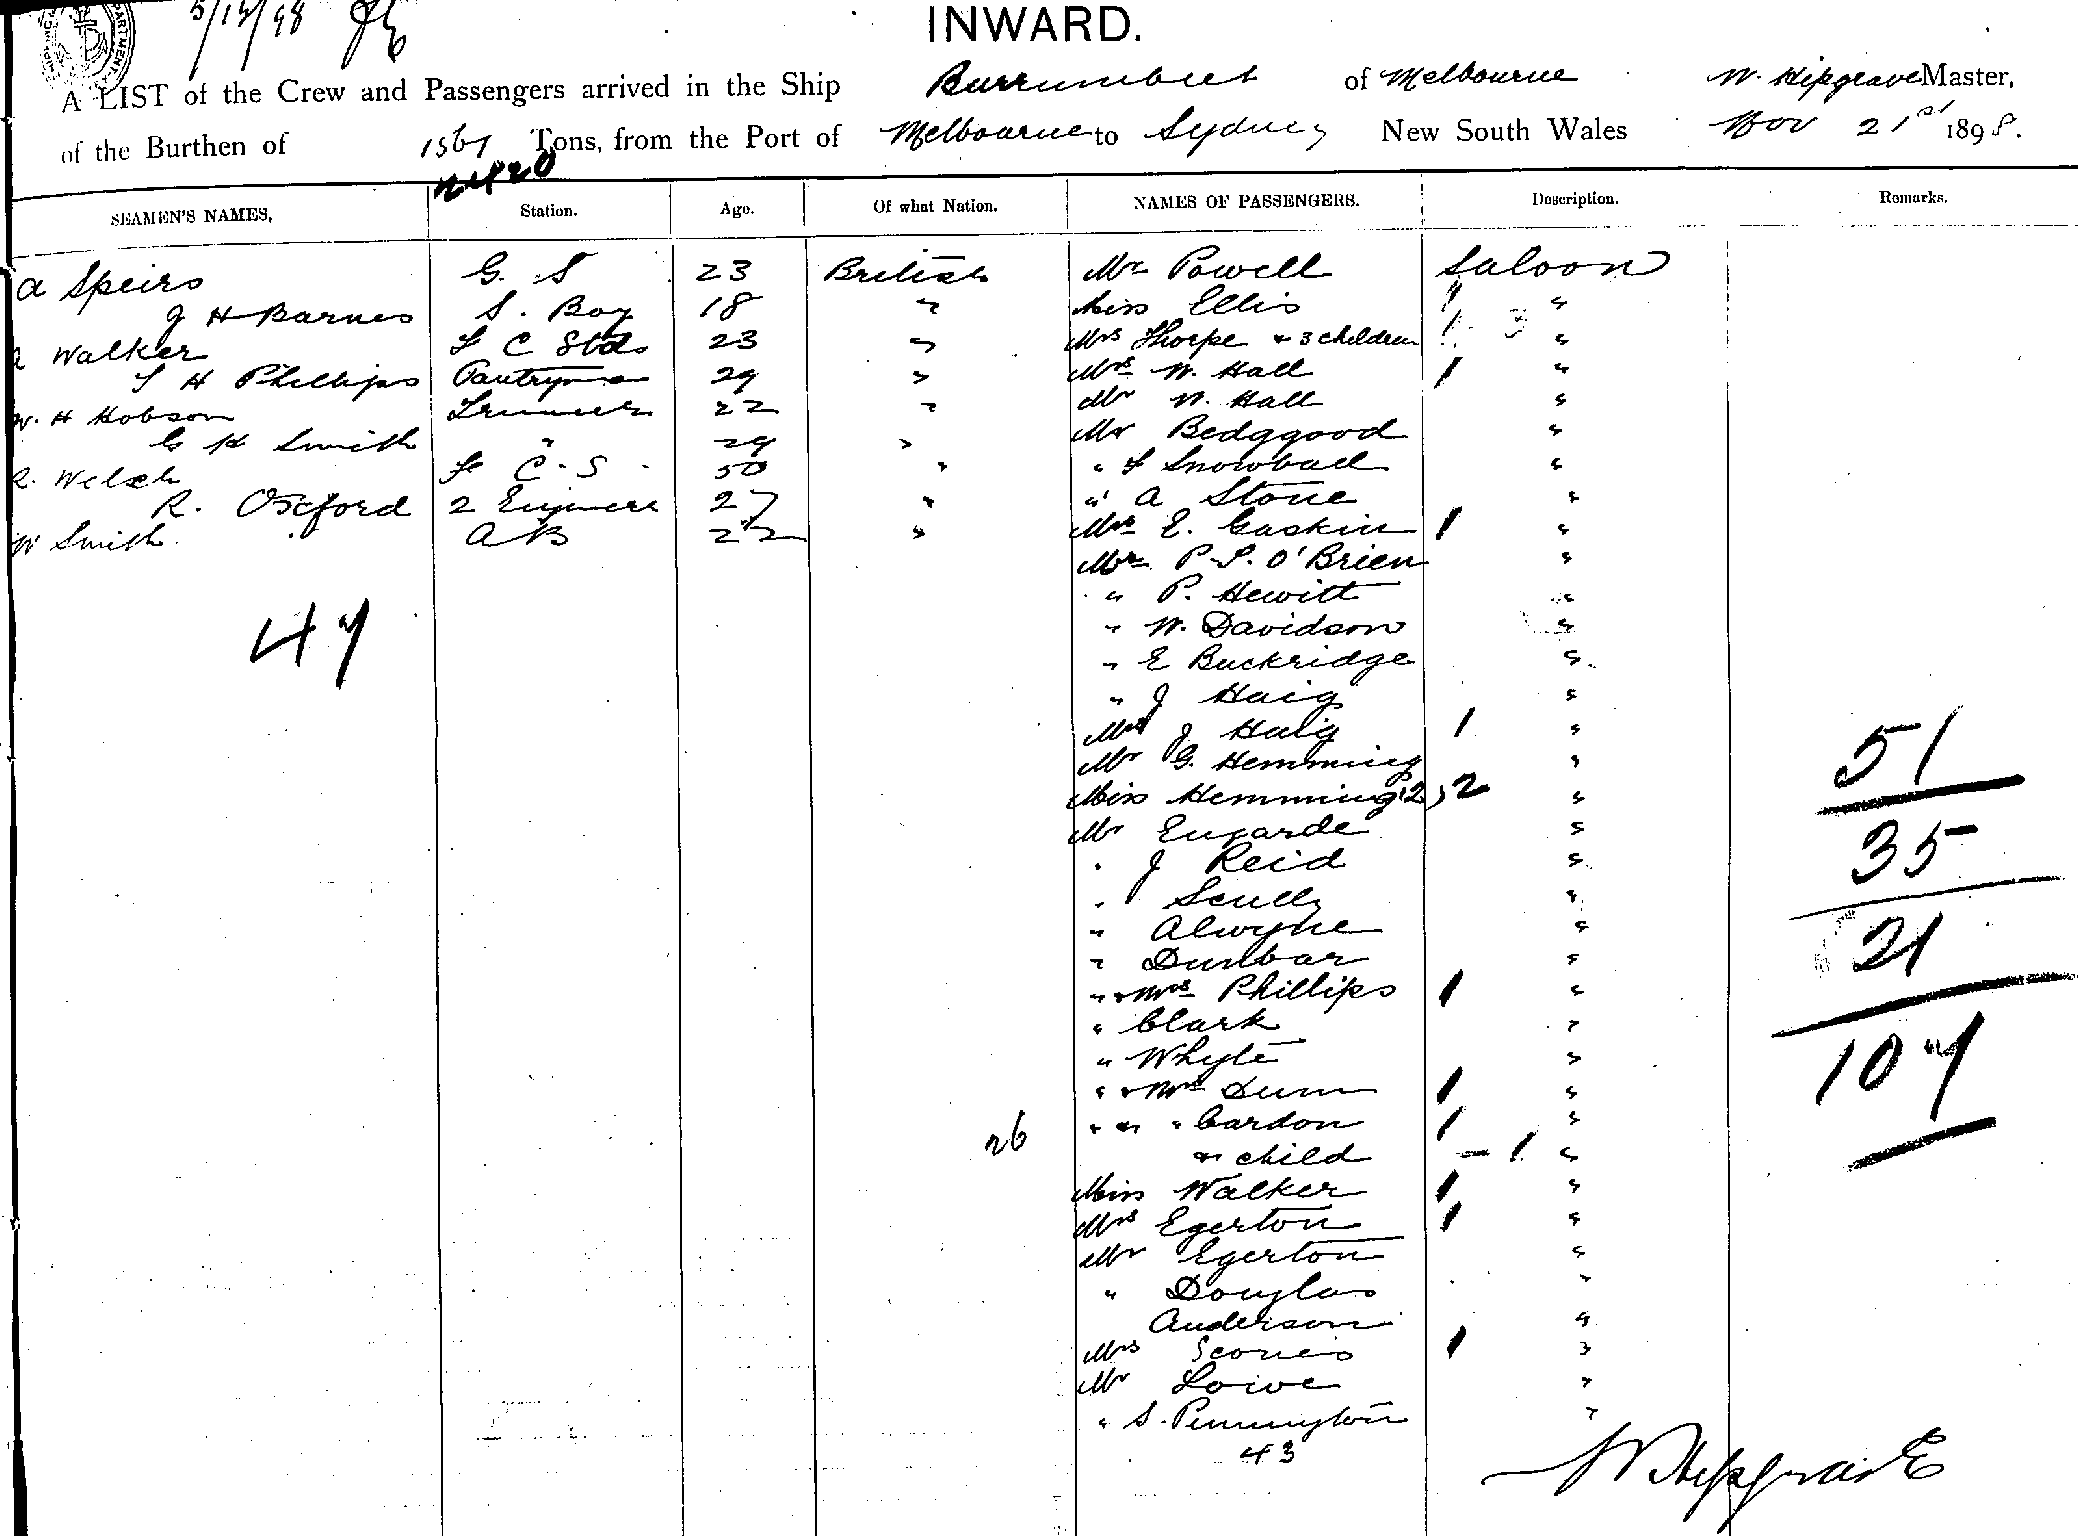 5/12/98
INWARD.
A LIST of the Crew and Passengers arrived in the Ship Burrumbeet of Melbourne W. Hipgrave Master,
of the Burthen of Tons, from the Port of Melbourne to Sydney New South Wales Nov 21st 1898.
2420
SEAMEN'S NAMES, Station. Age. Of what Nation. NAMES OF PASSENGERS. Description. Remarks.
A Speirs G. S 23 British Mr Powell Saloon
J H Barnes S. Boy 18 " Miss Ellis " "
Walker F C Stds 23 " Mrs Thorpe & 3 children 1 3 "
S H Phillips Pantryman 29 " Mrs W. Hall 1 "
W. H Hobson Trimmer 22 " Mr W. Hall "
G H Smith " 29 " Mr Bedggood "
R. Welsh F C. S 50 " " F Snowball "
R. Oxford 2 Engineer 27 " " A Stone "
W Smith. A B 22 " Mrs E. Gaskin 1 "
Mr P. S. O'Brien "
" P. Hewitt "
47 " W. Davidson "
" E Buckridge "
" J Haig "
Mrs J Haig 1 "
Mr G. Hemming "
51
Miss Hemming (2) 2 "
Mr Eugarde "
" J Reid "
35
" Scully "
" Alwyne "
21
" Dunbar "
" & Mrs Phillips 1 "
" Clark "
" Whyte "
107
" & Mrs Dunn 1 "
" & " Cardon 1 "
26
& child - 1 "
Miss Walker 1 "
Mrs Egerton 1 "
Mr Egerton "
" Douglas "
Anderson "
Mrs Scones 1 "
Mr Lowe "
" S. Pennington "
43
W Hipgrave